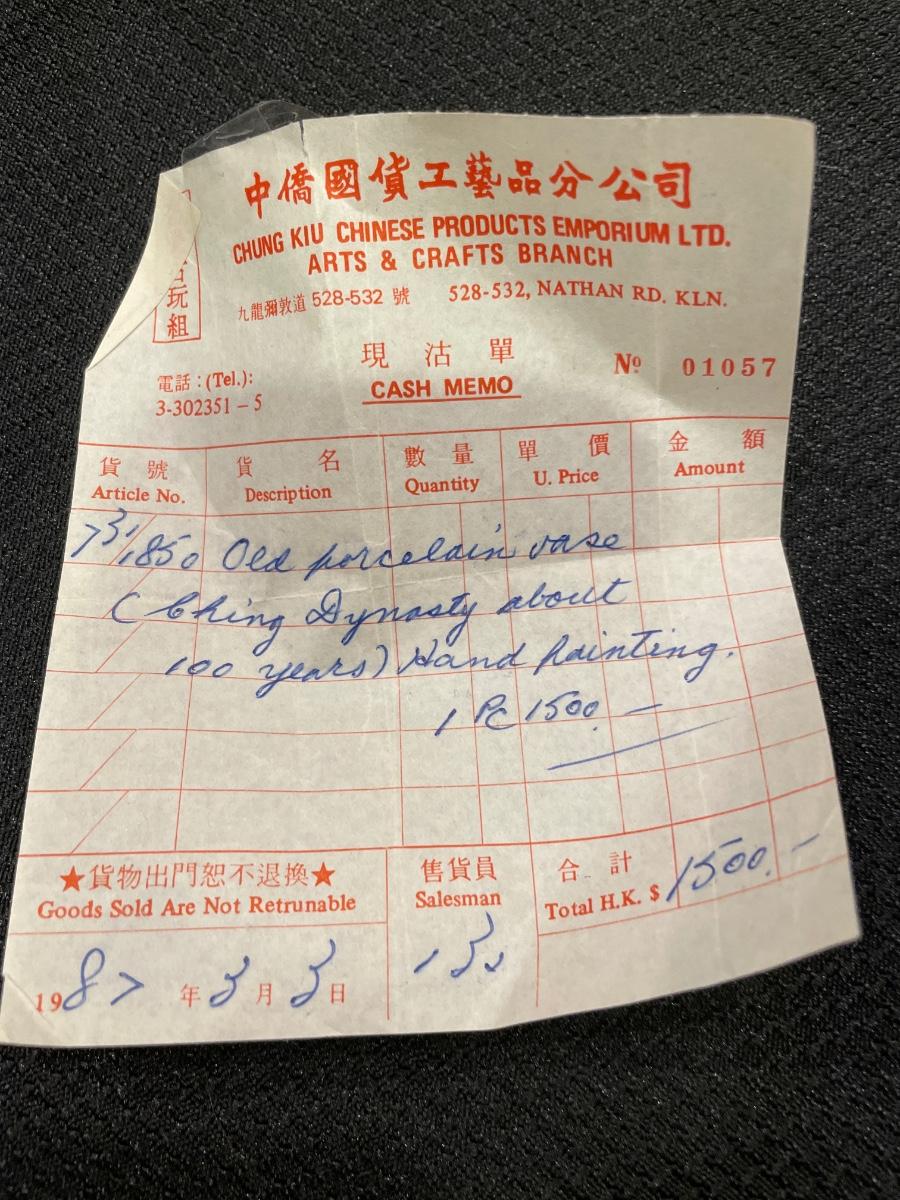 中僑國貨工藝品分公司
CHUNG KIU CHINESE PRODUCTS EMPORIUM LTD.
ARTS & CRAFTS BRANCH
玩組
九龍彌敦道 528-532 號 528-532, NATHAN RD. KLN.
現沽單
CASH MEMO
№ 01057
電話：(Tel.):
3-302351 – 5
貨號 貨名 數量 單價 金額
Article No. Description Quantity U. Price Amount
Old porcelain vase
(Ching Dynasty about
100 years) Hand Painting.
1 PC 1500.—
★貨物出門恕不退換★
Goods Sold Are Not Retrunable
售貨員
Salesman
合計
Total H.K. $ 1500.—
1987年3月3日